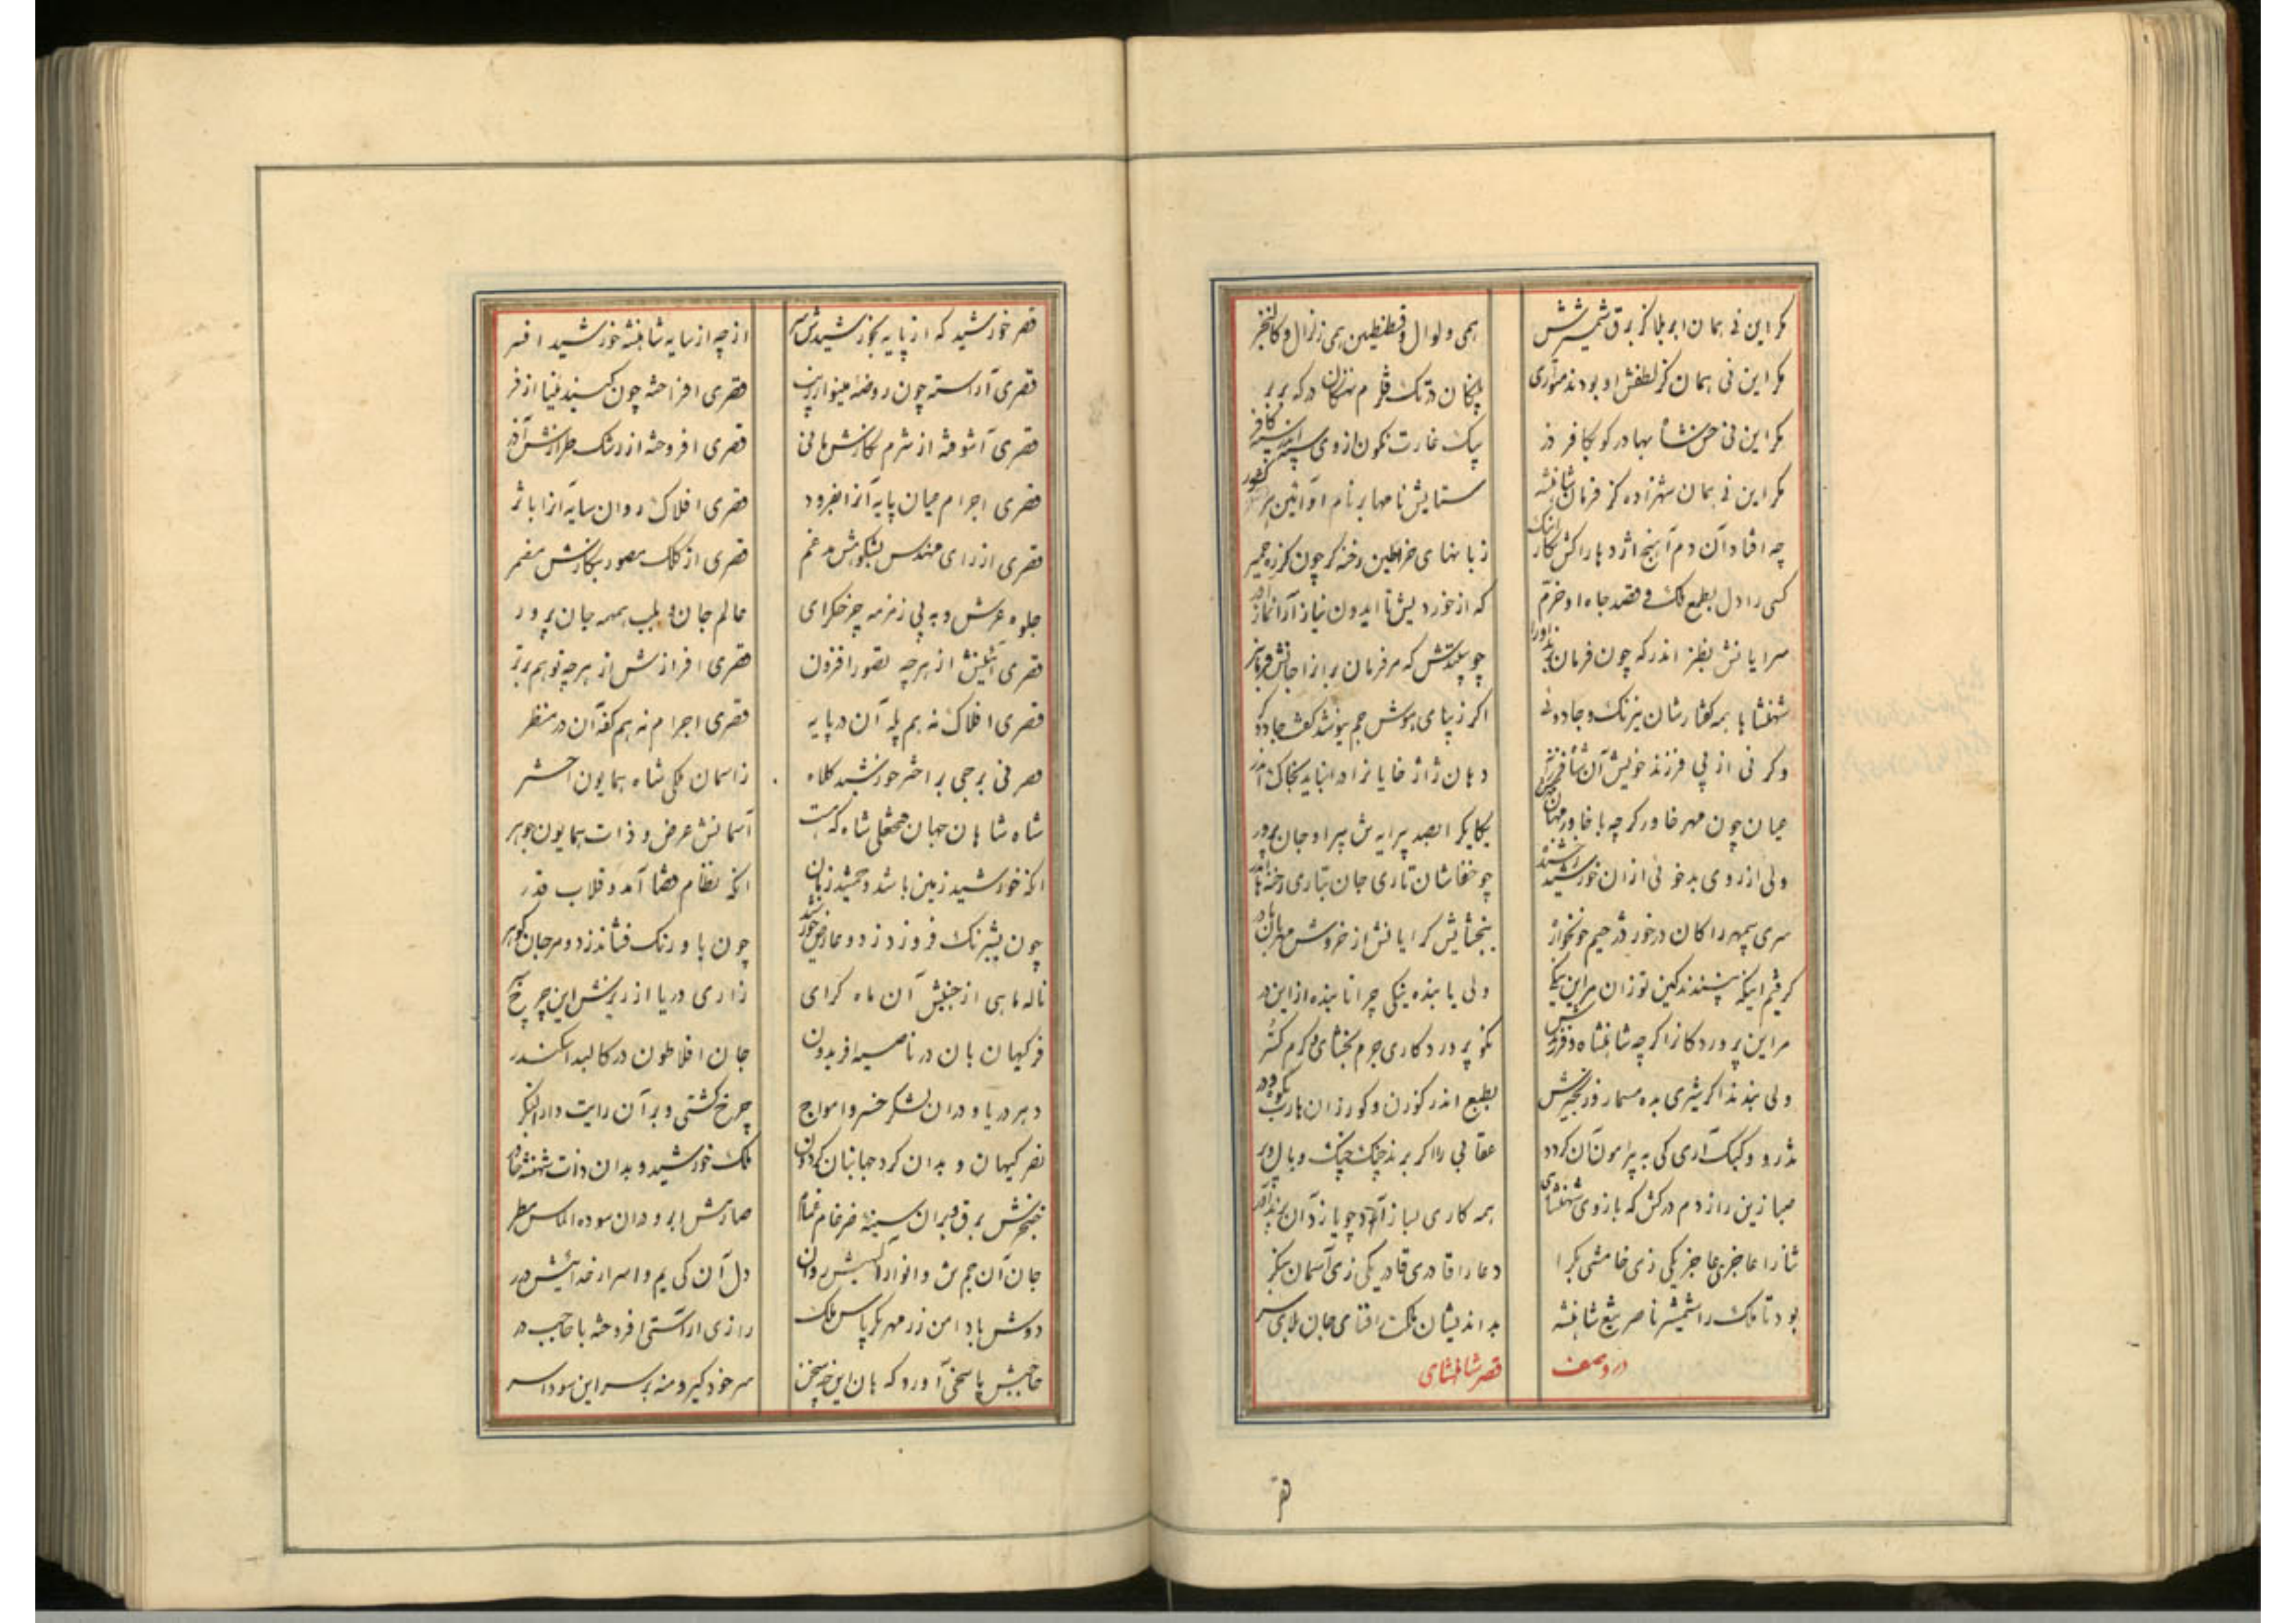 مکر این نی همان ابر بلا کز برق شمشیرش
همی ولوال و قسطنطین همی زلزال و کالنجر
مکر این نی همان کز لطفش او بودند متواری
پلنکان در تک قلزم نهنکان در که بربر
مکر این نی حسن شاه بهادر کو بکافر دز
پیک غارت نکون از وی
مکر این نی همان شهزاده کز فرمان شاهنشه
ستایش نامها بر نام او آئین هر کشور
چه افتاد آن دم آهنج اژدها را کش بکار اینک
زبانهای خراطین رخنه کر چون کرزه حمیر
کسی را دل بطمع ملک و قصد جاه او خرم
که از خوردیش تا ایدون نیاز آرا نماز آور
سرایانش بطنز اندر که چون فرمان برند او را
چو پیلستش که مر فرمان براز اجانش فرمانبر
شهنشاها همه کفتارشان نیرنک و جادوئی
اکر زیبای هوش جم نیوشد کفت جادوکر
وکر نی از پی فرزند خویش آن شاه
دهان ژاژ خایانرا در انباید بخاک اندر
میان چون مهر خاور کر چه با خاور
یکایک را بصد پیرایه ش پیرا و جان پرور
ولی از روی بدخوئی از ان خورشید
چو خفاشان تاری جان بتاری رخنه ها اندر
سری سپهر را کان در خور در حیم خونخوار
ببخشایش کرایانش از خروش مهربان مادر
کرفتم اینکه نپسندند کین توزان مر این نیکی
ولی یا بنده نیکی چرا تا بنده از این در
مر این پروردکانرا کر چه شاهنشاه و فرزندش
نکو پروردکاری جرم بخشای و کرم کستر
ولی بندند اکر شیری بده مسمار و زنجیرش
بطبع اندر کوزن و کور زان هارب
تذرو و کبک آری کی به پیرامون آن کردد
عقابی را اکر برند چنک و بال و پر
صبا زین راز دم در کش که بازوی شهنشاهی
همه کاری بساز آرد چو یازد آن بند آور
ثنا را عاجزی عاجز یکی زی خامشی بکرا
دعا را قادری قادر یکی زی آسمان بنکر
بود تا ملک را شمشیر ناصر تیغ شاهنشه
بد اندیشان ملکت را قنای جان بلای سر
در وصف
قصر شاهنشاهی
قصر
قصر خورشید که از پایه بخورشیدش سر
از چه از سایه شاهنشه خورشید افسر
قصری آراسته چون روضه مینو از زیب
قصری افراخته چون کنبد مینا از فر
قصری آشوفته از شرم نکارش مانی
قصری افروخته از رشک طرازش آذر
قصری اجرام میان پایه آنرا بفرود
قصری افلاک روان سایه آنرا باثر
قصری از رای مهندس بشکوهش مدغم
قصری از کلک مصور بنکارش مضمر
جلوه عرش و به پی زمزمه چرخکرای
عالم جان و بلب همهمه جان پرور
قصری آئینش از هر چه تصور افزون
قصری افرازش از هر چه توهم برتر
قصری افلاک نه هم پله آن در پایه
قصری اجرام نه هم کفه آن در منظر
قصر نی برجی بر اختر خورشید کلاه
ز اسمان فلکی شاه همایون اختر
شاه شاهان جهان فتحعلی شاه که هست
آسمانش عرض و ذات همایون جوهر
آنکه خورشید زمین باشد و جمشید زمان
آنکه نظام قضا آمد و قلاب قدر
چون بشبرنک فروزد ز دو عارض خورشید
چون باورنک فشاند ز دو مرجان کوهر
ناله ماهی از جنبش آن ماه کرای
زاری دریا از ریزش این چرخ
فر کیهان بان در ناصیه افریدون
جان افلاطون در کالبد اسکندر
دهر دریا و در ان لشکر خسرو امواج
چرخ کشتی و بر آن رایت دارا لنکر
قصر کیهان و بدان کرد جهانبان کردون
ملک خورشید و بدان ذات شهنشه خاور
خنجرش برق و بر ان سینه ضرغام غمام
صارمش ابر و در ان سوده الماس مطر
جان آن جم ش و انوار الهیش روان
دل آن کی یم و اسرار خدائیش درر
دوش باد امن زر مهر بکرپاس ملک
رازی آراستی افروخته با حاجب در
حاجبش پاسخی آورد که هان این چه سخن
سر خود کیر و منه بر سر این سودا سر